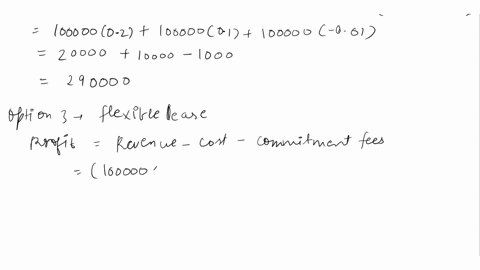 = 100000(0.2) + 100000(0.1) + 100000(-0.01)
= 20000 + 10000 - 1000
= 290000
Option 3 → flexible lease
Profit = Revenue - cost - commitment fees
= (100000